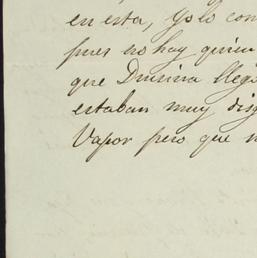 en esta, Yo lo con
pues no hay quien
que Dnisina llego
estaban muy disg
Vapor pero que n